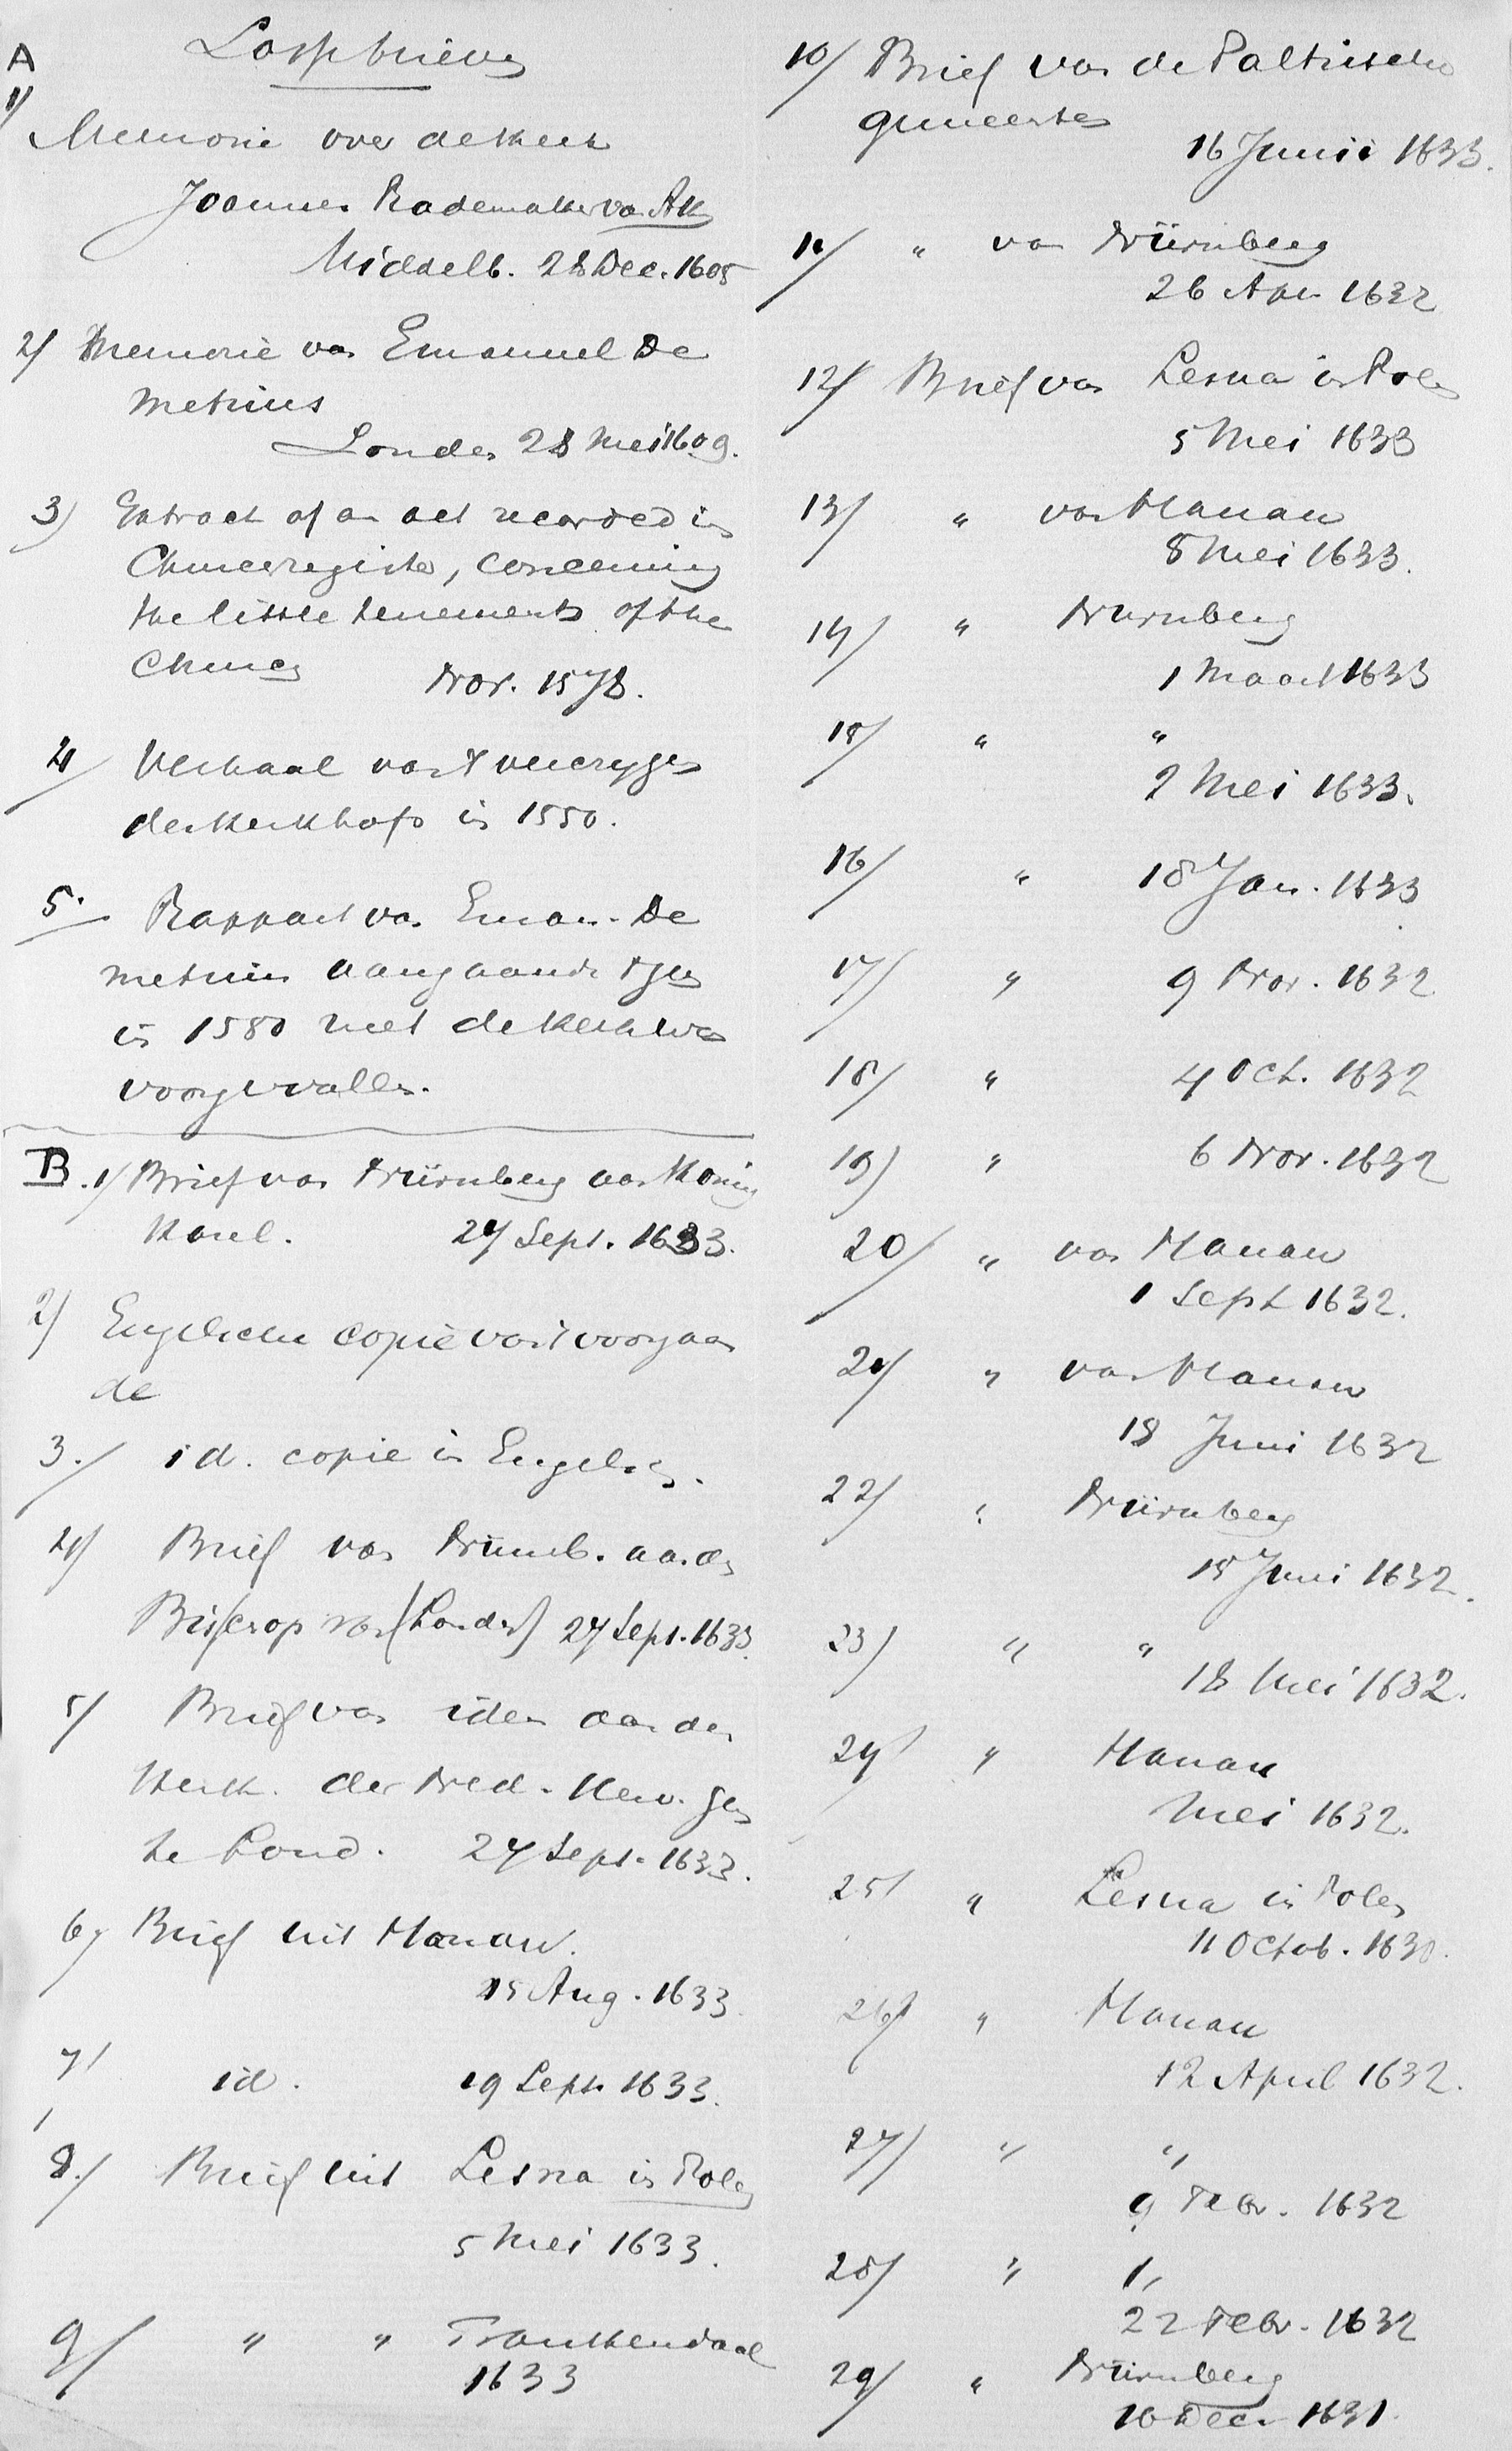 A
Losse brieven
1/
Memorie over de kerk
Joannes Rademaker van Aken
Middelb. 28 Dec. 1605
2/ Memorie van Emanuel De
metrius
Londen 28 Mei 1609.
3) Extract of an act recorded in
Churcregister, concerning
the little tenements of the
Church
Nov. 1578.
4/ Verhaal van 't vercrygen
der kerkhofs in 1550.
5. Rapport van Eman. De
metrius aangaande 'tgen
in 1580 met de kerk was
voorgevallen.
B. 1/ Brief van Nürnberg aan Konig
Karel. 27 Sept. 1633.
2/ Engelsche copie van 't voorgaan
de
3./ id. copie in Engelsch.
4/ Brief van Nürnb. aan den
Bisscop van (Londen) 27 Sept. 1633.
5/ Brief van iden aan den
Kerk. der Ned. Herv. gem
te Lond. 27 Sept. 1633.
6/ Brief uit Hanau.
15 Aug. 1633.
7/ id. 19 Sept. 1633.
8./ Brief uit Lesna in Polen
5 Mei 1633.
9/ " " Frankendaal
1633
10/ Brief van de Paltzische
gemeentes
16 Junii 1633.
11/ " van Nürnberg
26 Apr. 1632
12/ Brief van Lesna in Polen
5 Mei 1633
13/ " van Hanau
8 Mei 1633.
14/ " Nurnberg
1 Maart 1633
15/ " "
2 Mei 1633.
16/ " 18 Jan. 1633
17/ " 9 Nov. 1632
18/ " 4 Oct. 1632
19) " 6 Nov. 1632
20/ " van Hanau
1 Sept 1632.
21/ " van Hanau
18 Juni 1632
22/ " Nürnberg
15 Juni 1632.
23) " "
18 Mei 1632.
24/ " Hanau
Mei 1632.
25/ " Lesna in Polen
11 Octob. 1630.
26/ " Hanau
12 April 1632.
27/ " "
9 Febr. 1632
28/ " "
22 Febr. 1632
29/ " Nürnberg
10 Dec. 1631.